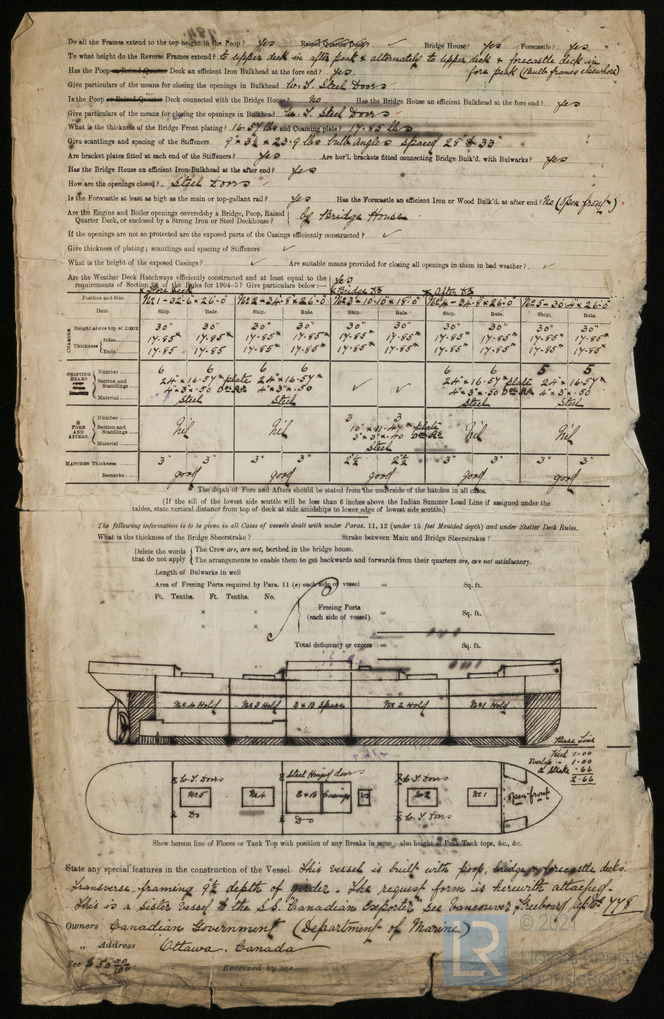 Do all the Frames extend to the top height in the Poop? yes Raised Quarter Deck? ✓ Bridge House? yes Forecastle? yes
To what height do the Reverse Frames extend? to upper deck in after peak & alternately to upper deck & forecastle deck in
fore peak (Bulb frames elsewhere)
Has the Poop or Raised Quarter Deck an efficient Iron Bulkhead at the fore end? yes
Give particulars of the means for closing the openings in Bulkhead W. T. Steel Doors
Is the Poop or Raised Quarter Deck connected with the Bridge House? No Has the Bridge House an efficient Bulkhead at the fore end? yes
Give particulars of the means for closing the openings in Bulkhead W. T. Steel Doors
What is the thickness of the Bridge Front plating? 16.57 lbs and Coaming plate? 17.85 lbs
Give scantlings and spacing of the Stiffeners 9" 3½" × 23.9 lbs bulb angles spaced 28" & 33"
Are bracket plates fitted at each end of the Stiffeners? yes Are hor'l. brackets fitted connecting Bridge Bulk'd. with Bulwarks? yes
Has the Bridge House an efficient Iron Bulkhead at the after end? yes
How are the openings closed? Steel Doors
Is the Forecastle at least as high as the main or top-gallant rail? yes Has the Forecastle an efficient Iron or Wood Bulk'd. at after end? No (open front)
Are the Engine and Boiler openings covered by a Bridge, Poop, Raised
Quarter Deck, or enclosed by a Strong Iron or Steel Deckhouse? by Bridge House
If the openings are not so protected are the exposed parts of the Casings efficiently constructed? ✓
Give thickness of plating; scantlings and spacing of Stiffeners ✓
What is the height of the exposed Casings? ✓ Are suitable means provided for closing all openings in them in bad weather? ✓
Are the Weather Deck Hatchways efficiently constructed and at least equal to the
requirements of Section of the Rules for 1904-5? Give particulars below:— Yes
Fore Deck Bridge Dk After Dk
Position and Size. No 1-32.6×26.0 No 2-34.8×26.0 No 3-10.10×18.0 No 4-34.8×26.0 No 5-30.4×26.0
Item. Ship. Rule. Ship. Rule. Ship. Rule. Ship. Rule. Ship. Rule.
COAMING Height above top of DECK 30" 30" 30" 30" 30" 30" 30" 30" 30" 30"
Thickness Sides 17.85# 17.85# 17.85# 17.85# 17.85# 17.85# 17.85# 17.85# 17.85# 17.85#
Ends 17.85 17.85 17.85 17.85 17.85 17.85 17.85 17.85 17.85 17.85
SHIFTING BEAMS Number 6 6 6 6 ✓ ✓ 6 6 5 5
Section and Scantlings 24" × 16.57# plate 24" × 16.57# 24" × 16.57# plate 24" × 16.57#
4" × 3" × .50 4" × 3" × .50 4" × 3" × .50 4" × 3" × .50
Material Steel Steel Steel Steel
FORE AND AFTERS. Number Nil Nil 3 3 Nil Nil
Section and Scantlings 10" × 11.47# plate
3" × 3" × .40
Material Steel
HATCHES Thickness 3" 3" 3" 3" 2½ 2½ 3" 3" 3" 3"
Remarks. good good good good good
The depth of Fore and Afters should be stated from the underside of the hatches in all cases.
(If the sill of the lowest side scuttle will be less than 6 inches above the Indian Summer Load Line if assigned under the
tables, state vertical distance from top of deck at side amidships to lower edge of lowest side scuttle.)
The following information is to be given in all Cases of vessels dealt with under Paras. 11, 12 (under 15 feet Moulded depth) and under Shelter Deck Rules.
What is the thickness of the Bridge Sheerstrake? Strake between Main and Bridge Sheerstrakes?
Delete the words The Crow are, are not, berthed in the bridge house.
that do not apply The arrangements to enable them to get backwards and forwards from their quarters are, are not satisfactory.
Length of Bulwarks in well
Area of Freeing Ports required by Para. 11 (e) each side of vessel = Sq. ft.
Ft. Tenths. Ft. Tenths. No.
× × Freeing Ports
× × (each side of vessel) = Sq. ft.
Total deficiency or excess = Sq. ft.
No 4 Hold No 3 Hold E & B Space No 2 Hold No 1 Hold
Keel 1.00
1.00
A Strake .66
2.66
W. T. Doors Steel Hinged doors W. T. Doors
No 5 No 4 E & B Casings No 2 No 1 open front
Do Do W. T. Doors
Show hereon line of Floors or Tank Top with position of any Breaks in same; also height of Peak Tank tops, &c., &c.
State any special features in the construction of the Vessel This vessel is built with poop, bridge & forecastle decks.
Transverse framing 9½ depth of girder. The request form is herewith attached.
This is a sister vessel to the S.S. "Canadian Exporter" See Vancouver Freeboard 778
Owners Canadian Government (Department of Marine)
„ Address Ottawa, Canada
Fee $50 00/100 Received by me
© 2021
LR
Lloyd's Register
Foundation